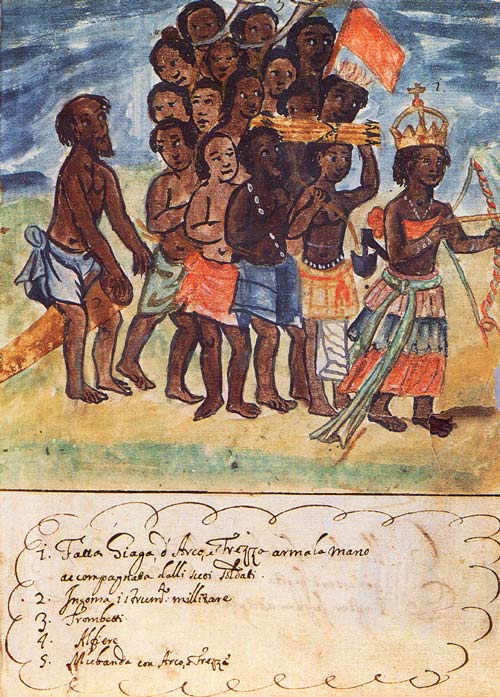 1. Fatta Giaga d'Arco, e Frezza arma la mano
accompagnata dalli suoi Soldati.
2. Ingoma istrum.to millitare
3. Trombetti
4. Alfiere
5. Mubanda con Arco, e Frezze
1